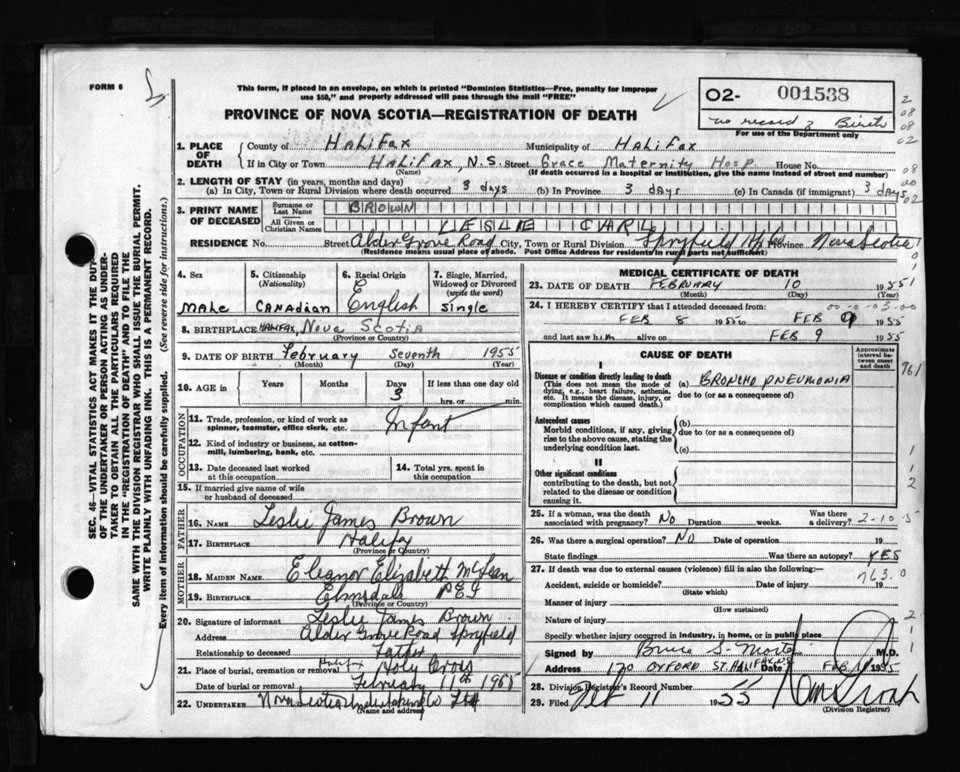 FORM 6
This form, if placed in an envelope, on which is printed "Dominion Statistics—Free, penalty for improper
use $50," and properly addressed will pass through the mail "FREE"
PROVINCE OF NOVA SCOTIA—REGISTRATION OF DEATH
02- 001538
no record of Birth
For use of the Department only
1. PLACE OF DEATH County of HALIFAX Municipality of HALIFAX
If in City or Town HALIFAX, N.S. Street Grace Maternity Hosp. House No.
(Name) (If death occurred in a hospital or institution, give the name instead of street and number)
2. LENGTH OF STAY (in years, months and days)
(a) In City, Town or Rural Division where death occurred 3 days (b) In Province 3 days (c) In Canada (if immigrant) 3 days
3. PRINT NAME OF DECEASED Surname or Last Name BROWN
All Given or Christian Names LESLIE CARL
RESIDENCE No. Street Alder Grove Road City, Town or Rural Division Spryfield Hfx Co Province Nova Scotia
(Residence means usual place of abode. Post Office Address for residents in rural parts not sufficient)
4. Sex MALE
5. Citizenship (Nationality) CANADIAN
6. Racial Origin English
7. Single, Married, Widowed or Divorced (write the word) Single
8. BIRTHPLACE HALIFAX, Nova Scotia
(Province or Country)
9. DATE OF BIRTH February Seventh 1955
(Month) (Day) (Year)
10. AGE in Years Months Days 3 If less than one day old hrs. or min.
OCCUPATION
11. Trade, profession, or kind of work as spinner, teamster, office clerk, etc. Infant
12. Kind of industry or business, as cotton-mill, lumbering, bank, etc.
13. Date deceased last worked at this occupation
14. Total yrs. spent in this occupation
15. If married give name of wife or husband of deceased
FATHER
16. NAME Leslie James Brown
17. BIRTHPLACE Halifax
(Province or Country)
MOTHER
18. MAIDEN NAME Eleanor Elizabeth McLean
19. BIRTHPLACE Elmsdale PEI
(Province or Country)
20. Signature of informant Leslie James Brown
Address Alder Grove Road Spryfield
Relationship to deceased Father
21. Place of burial, cremation or removal Halifax Holy Cross
Date of burial or removal February 11th 1955
22. UNDERTAKER Nova Scotia Undertaking Co Ltd
(Name and address)
MEDICAL CERTIFICATE OF DEATH
23. DATE OF DEATH FEBRUARY 10 1955
(Month) (Day) (Year)
24. I HEREBY CERTIFY that I attended deceased from:
FEB 8 1955 to FEB 9 1955
and last saw him alive on FEB 9 1955
CAUSE OF DEATH
Approximate interval between onset and death
I
Disease or condition directly leading to death (a) BRONCHO PNEUMONIA
(This does not mean the mode of dying, e.g., heart failure, asthenia, etc. It means the disease, injury, or complication which caused death.)
due to (or as a consequence of)
Antecedent causes
Morbid conditions, if any, giving rise to the above cause, stating the underlying condition last.
(b)
due to (or as a consequence of)
(c)
II
Other significant conditions
contributing to the death, but not related to the disease or condition causing it.
25. If a woman, was the death associated with pregnancy? No Duration weeks. Was there a delivery? 2-10-5
26. Was there a surgical operation? NO Date of operation 19
State findings Was there an autopsy? YES
27. If death was due to external causes (violence) fill in also the following:—
763.0
Accident, suicide or homicide? Date of injury 19
(State which)
Manner of injury
(How sustained)
Nature of injury
Specify whether injury occurred in industry, in home, or in public place
Signed by M.D.
Address 170 OXFORD ST. HALIFAX Date FEB 1955
28. Division Registrar's Record Number
29. Filed Feb 11 1955
(Division Registrar)
SEC. 46—VITAL STATISTICS ACT MAKES IT THE DUTY
OF THE UNDERTAKER OR PERSON ACTING AS UNDER-
TAKER TO OBTAIN ALL THE PARTICULARS REQUIRED
IN THE "REGISTRATION OF DEATH" AND TO FILE THE
SAME WITH THE DIVISION REGISTRAR WHO SHALL ISSUE THE BURIAL PERMIT.
WRITE PLAINLY WITH UNFADING INK. THIS IS A PERMANENT RECORD.
Every item of information should be carefully supplied. (See reverse side for instructions.)